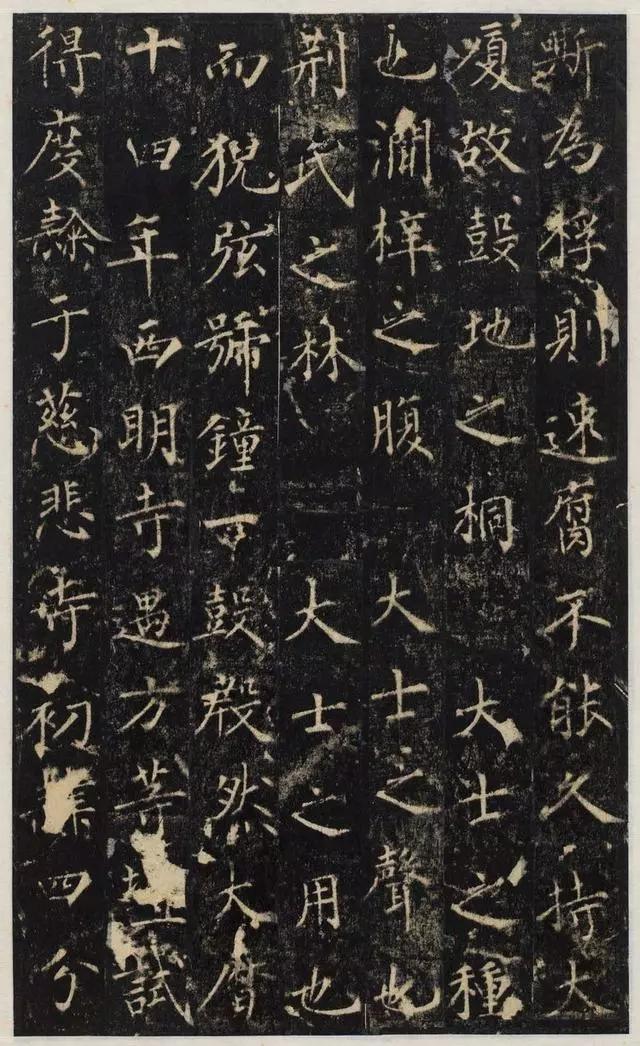 斲為桴則速腐不能久持大
厦故鼓地之桐大士之種
也澗梓之腹大士之聲也
荆氏之林大士之用也
而猊弦號鐘一鼓殷然大曆
十四年西明寺遇方等壇試
得度隸于慈悲寺初業四分